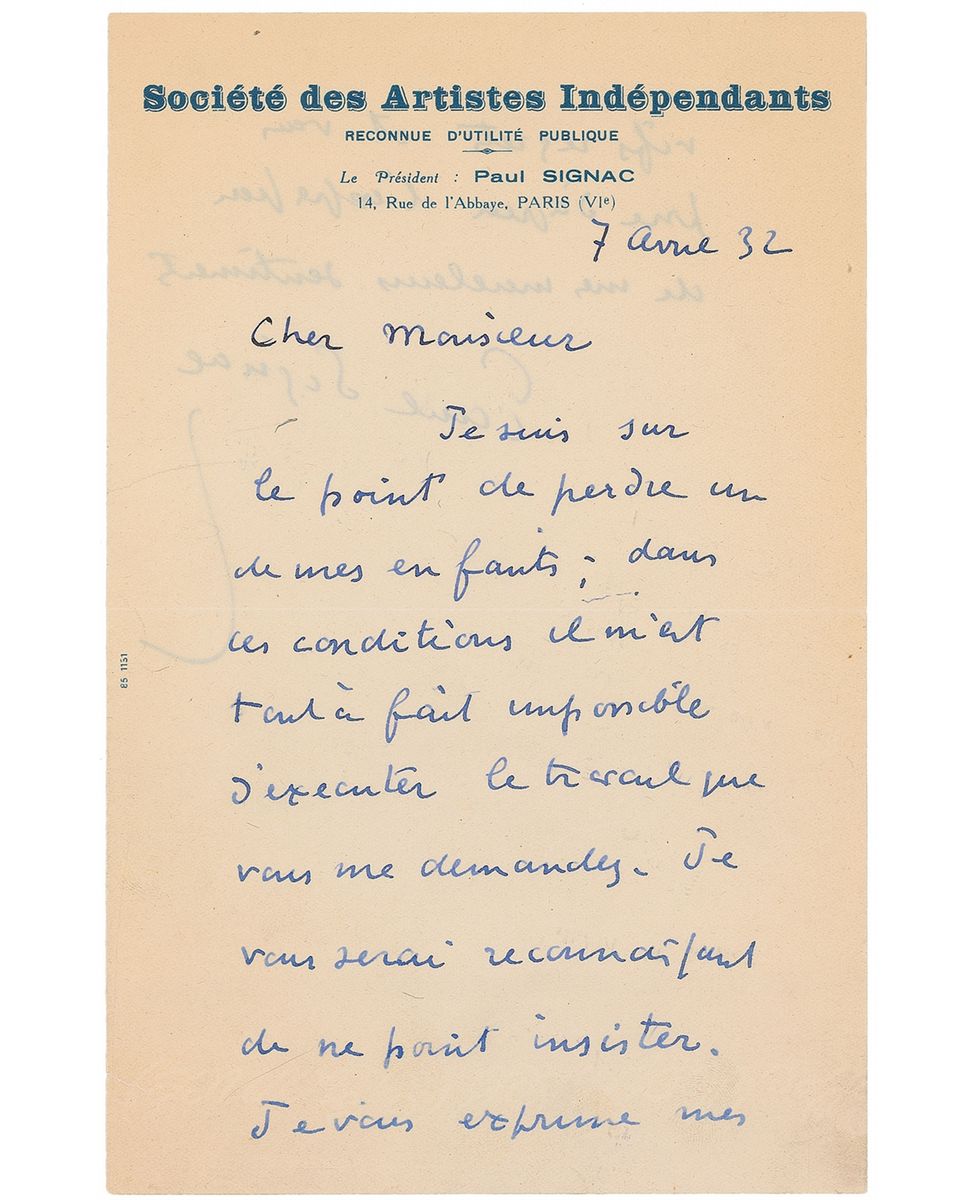 Société des Artistes Indépendants
RECONNUE D'UTILITÉ PUBLIQUE
Le Président : Paul SIGNAC
14, Rue de l'Abbaye, PARIS (VIe)
7 Avril 32
Cher Monsieur
Je suis sur
le point de perdre un
de mes enfants ; dans
ces conditions il m'est
tout à fait impossible
d'executer le travail que
vous me demandez. Je
vous serai reconnaissant
de ne point insister.
Je vous exprime mes
85 1151
de mes meilleurs sentiments
Paul Signac